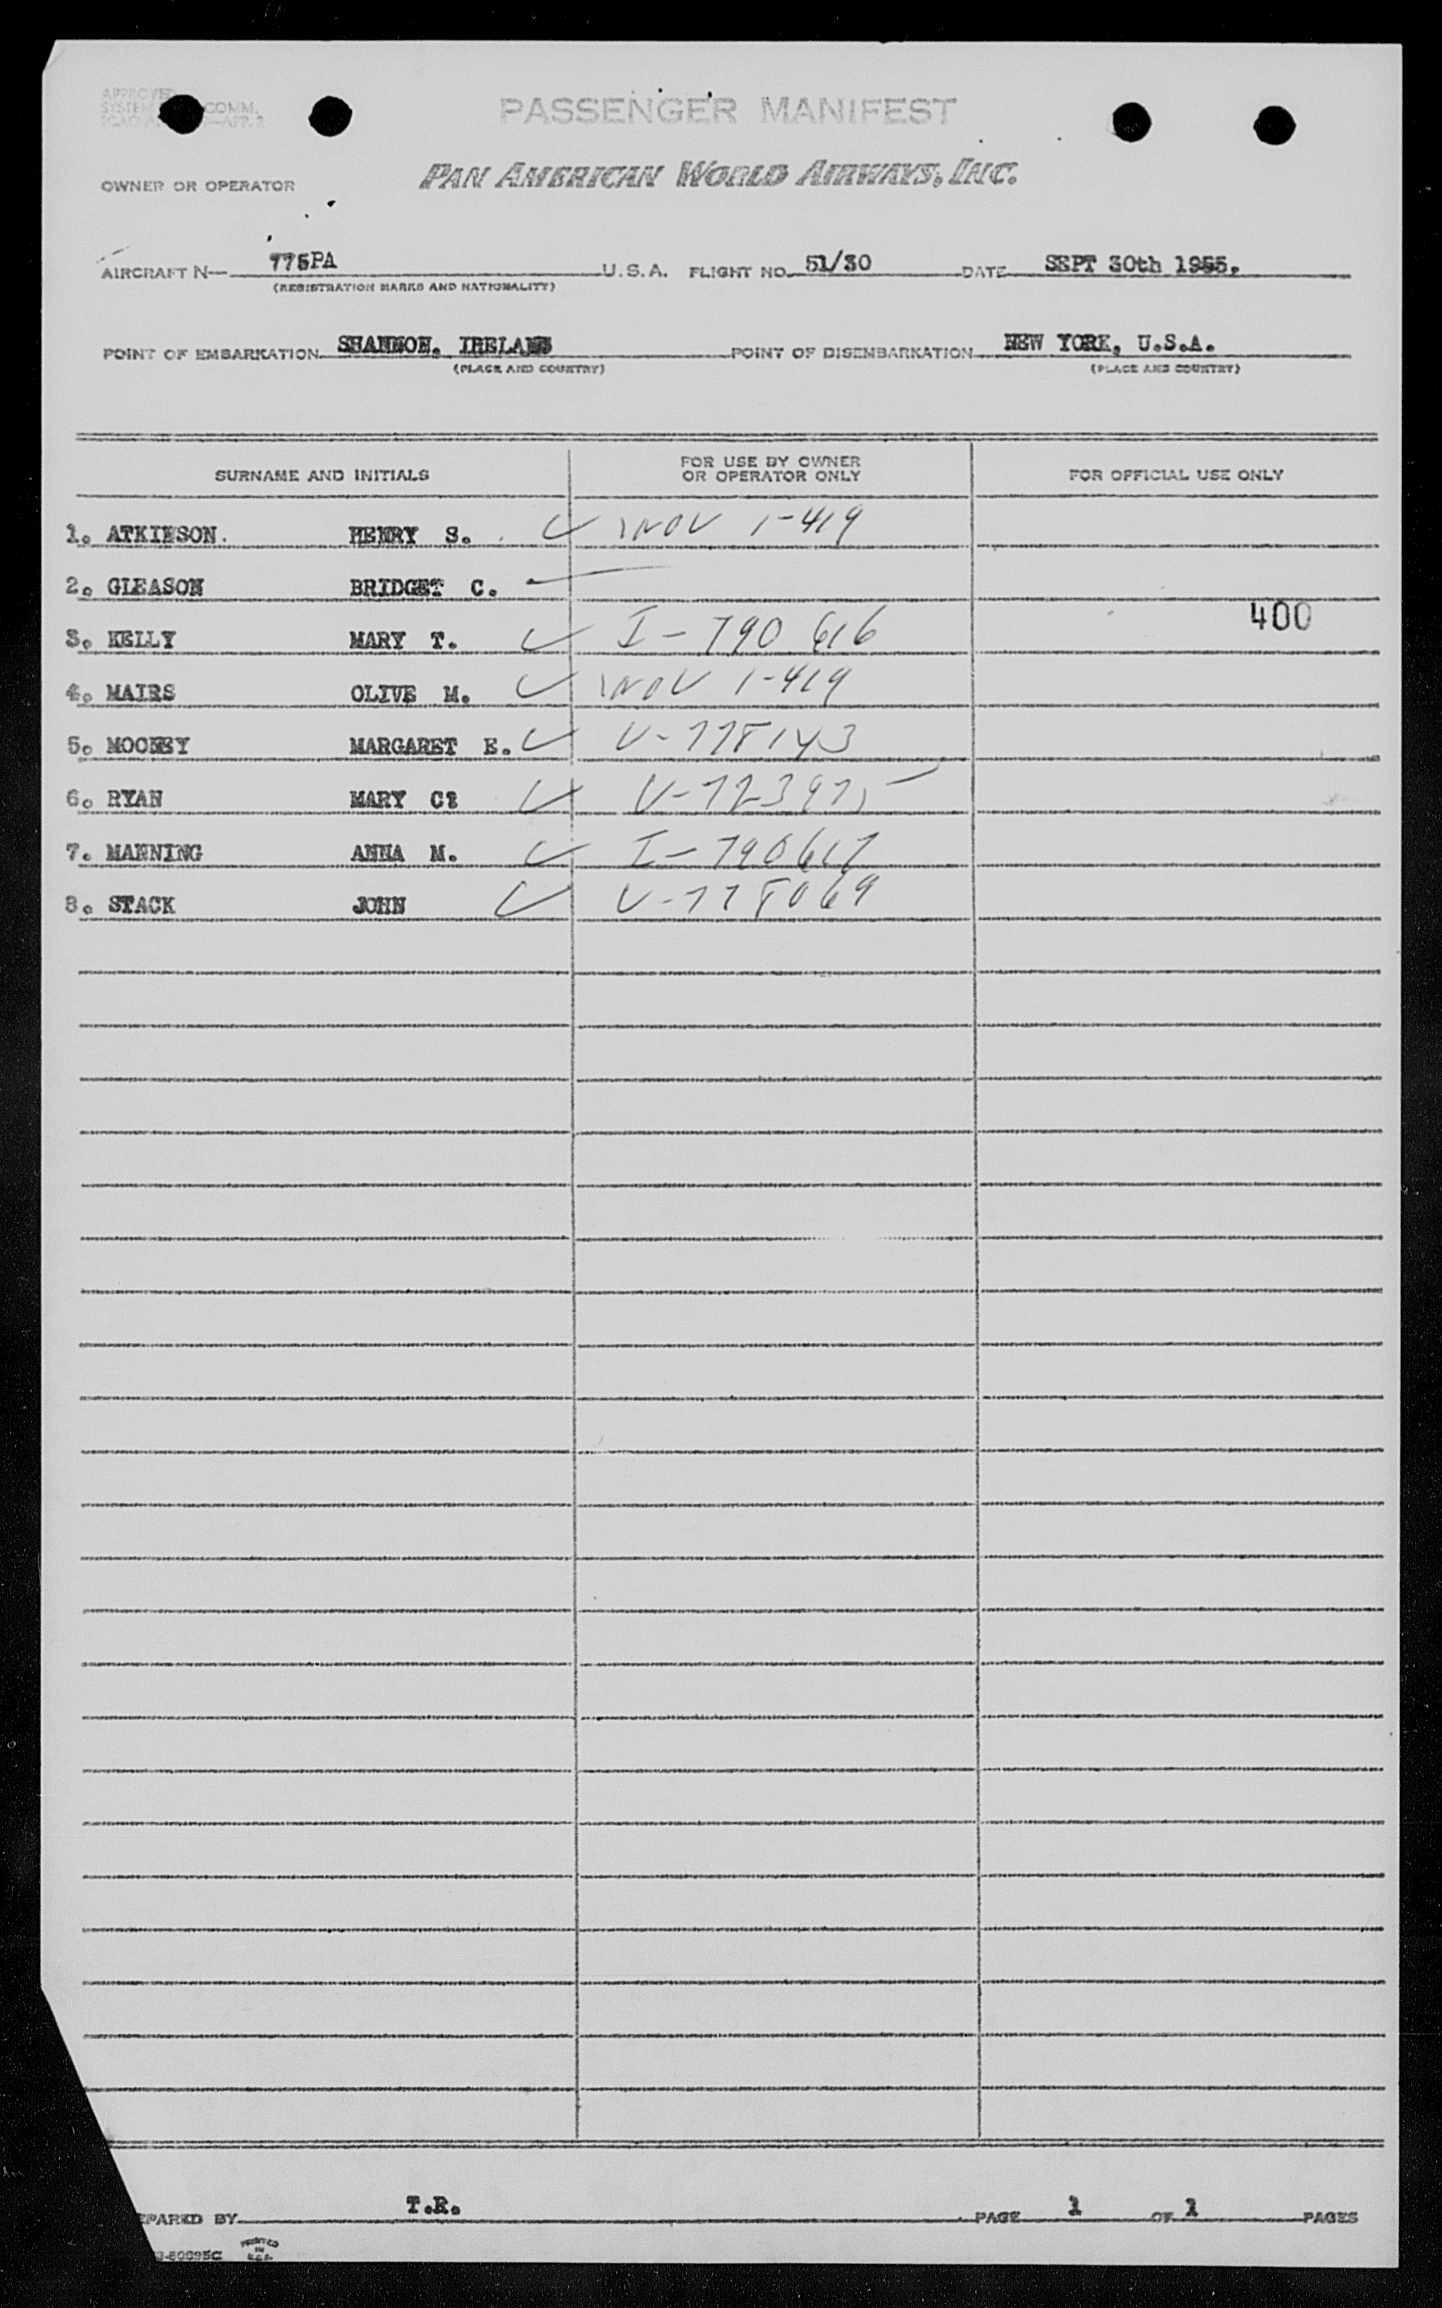 PASSENGER MANIFEST
PAN AMERICAN WORLD AIRWAYS, INC.
OWNER OR OPERATOR
AIRCRAFT N— 775PA U.S.A. FLIGHT NO. 51/30 DATE SEPT 30th 1955.
(REGISTRATION MARKS AND NATIONALITY)
POINT OF EMBARKATION SHANNON, IRELAND POINT OF DISEMBARKATION NEW YORK, U.S.A.
(PLACE AND COUNTRY) (PLACE AND COUNTRY)
SURNAME AND INITIALS FOR USE BY OWNER OR OPERATOR ONLY FOR OFFICIAL USE ONLY
1. ATKINSON. HENRY S. 1-419
2. GLEASON BRIDGET C.
400
3. KELLY MARY T. I-790 616
4. MAIRS OLIVE M. 1-419
5. MOONEY MARGARET E. V-778143
6. RYAN MARY C: V-723975
7. MANNING ANNA M. I-790617
8. STACK JOHN V-778069
EPARED BY T.R. PAGE 1 OF 1 PAGES
PRINTED
IN
U.S.A.